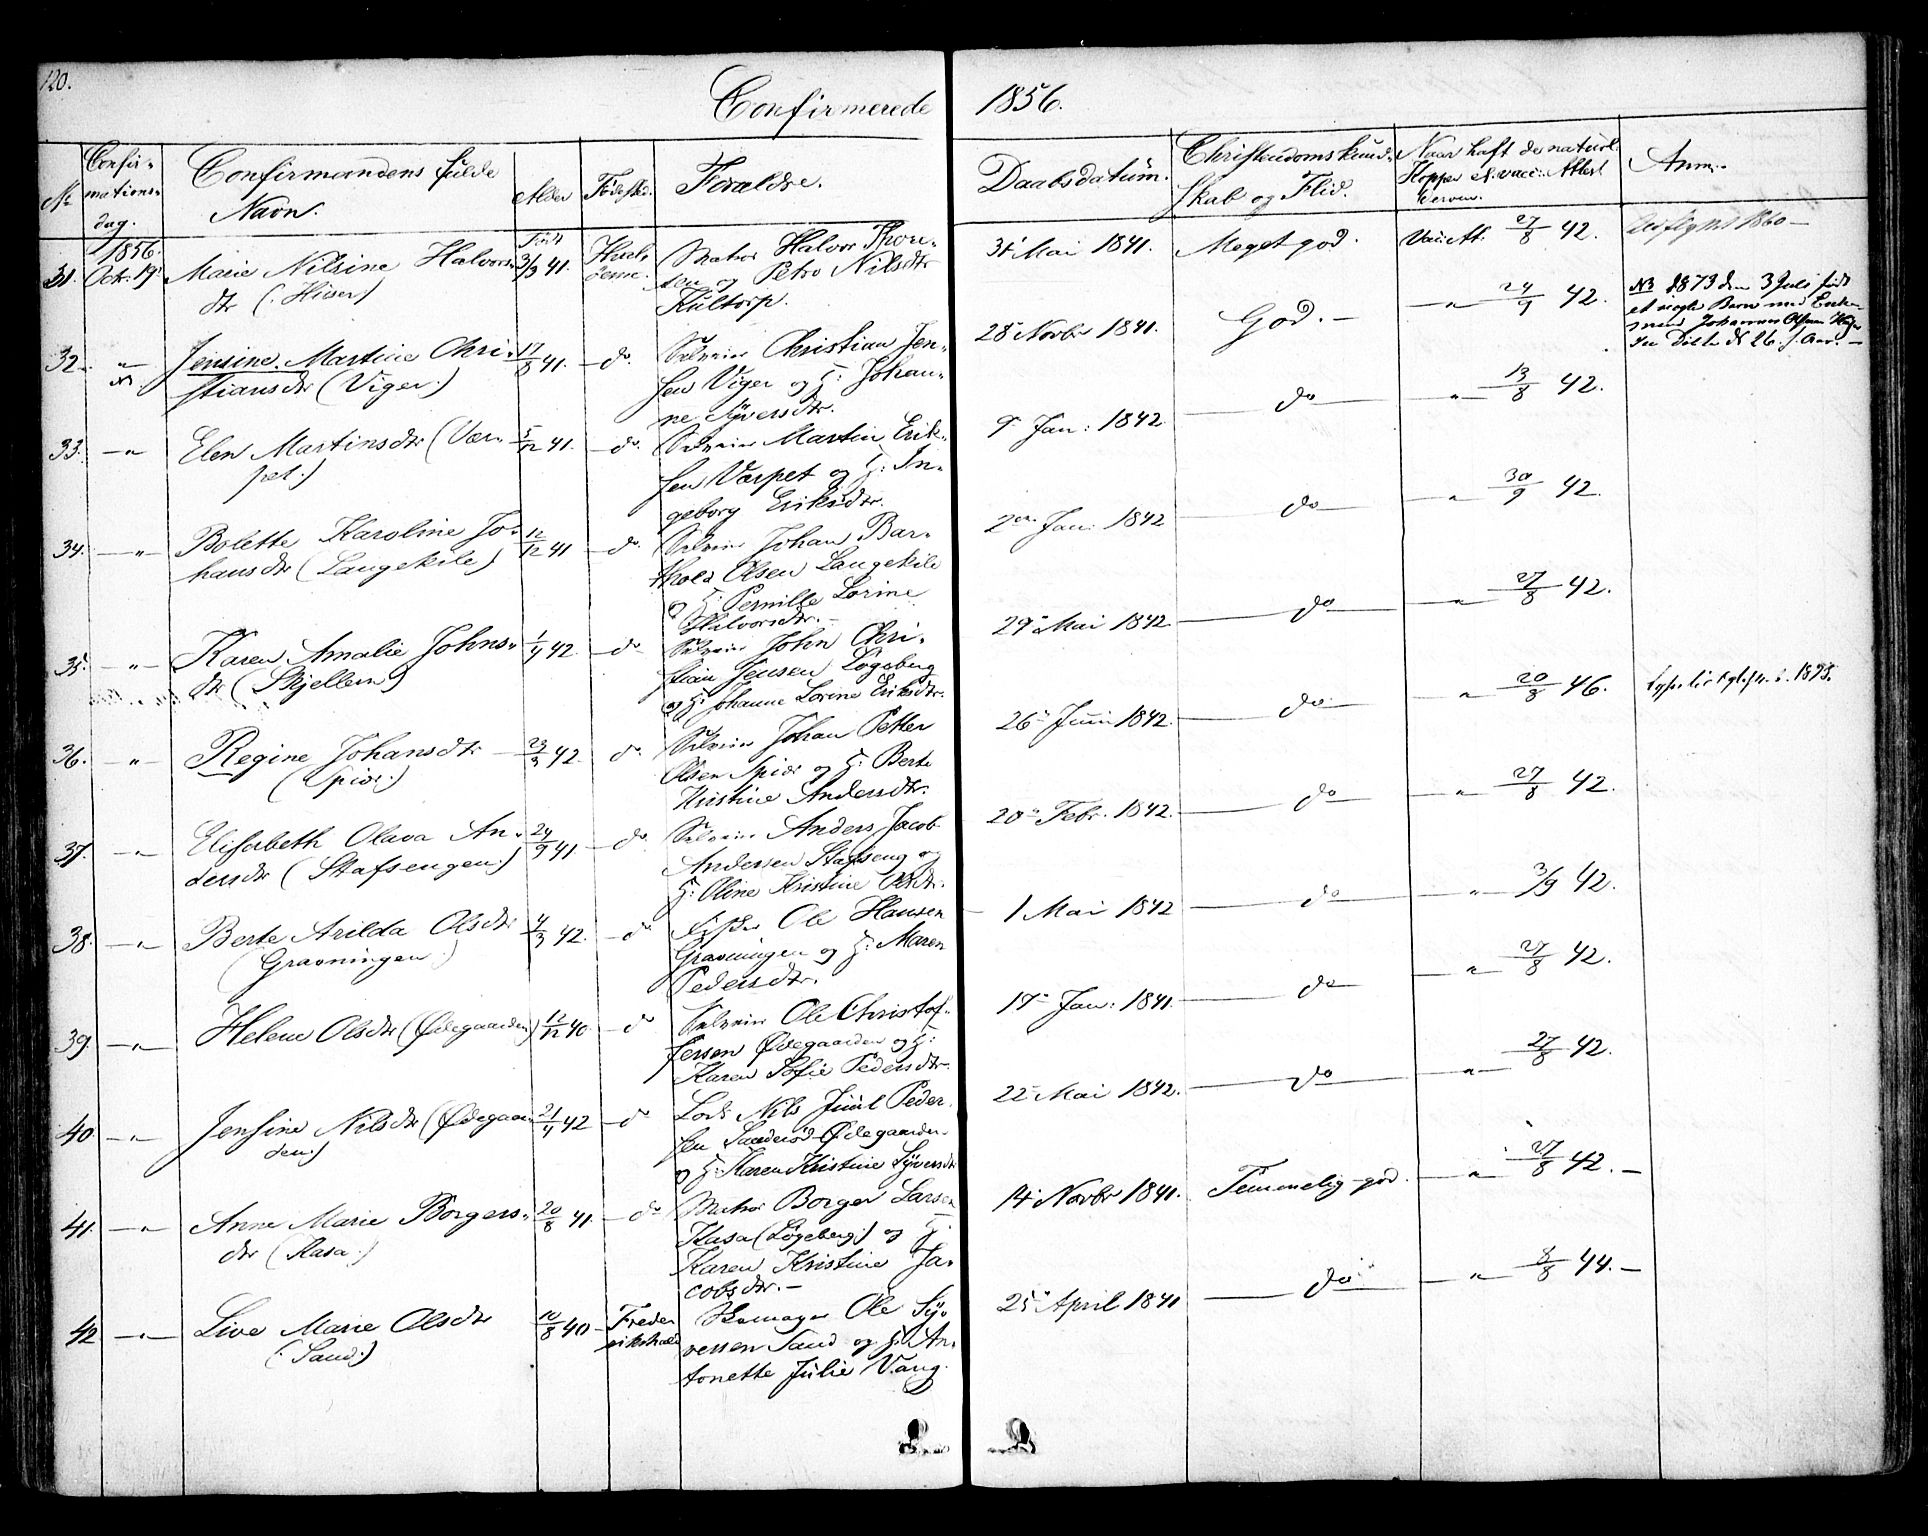 120.
Confirmerede 1856.
No Confirmationsdag. Confirmandens fulde Navn. Alder Fødested. Forældre. Daabsdatum. Christendomskundskab og Flid. Naar haft de naturl. Kopper el. vacc: Attest derom. Anm.
1856. Født
31. Octr. 19 Marie Nilsine Halvorsdtr (Huser) 31/3 41. Matros Halvor Thoresen og Petro Nilsdtr Kultorp. 31 Mai 1841. Meget god. Vacc. Att. 27/8 42. 1860
32. " Jensine Martine Christiansdtr (Viger.) 17/8 41. do. Selveier Christian Jensen Viger og H: Johanne Syversdtr. 28 Novbr 1841. God. " 24/9 42. NB 1873 den 3 Juli født et uægte Barn med Johannes Olsen
33. " Elen Martinsdtr (Værpet.) 5/12 41. do. Selveier Martin Eriksen Værpet og H: Ingeborg Eriksdtr. 9 Jan: 1842 do " 13/8 42.
34. " Bolette Karoline Johansdtr (Langekile) 12/12 41 do. Selveier Johan Barthold Olsen Langekile og H: Pernille Lorine Halvorsdtr. 2den Jan: 1842 do " 30/9 42.
35. " Karen Amalie Johnsdtr (Skjellern) 1/4 42. do Selveier John Christian Jensen Løgeberg og H: Johanne Lorine Eriksdtr. 29 Mai 1842 do " 27/8 42.
36. " Regine Johansdtr (Spior.) 23/3 42. do. Selveier Johan Petter Olsen Spior og H: Berte Kristine Andersdtr. 26 Juni 1842. do. " 20/8 46. 1898.
37. " Elisabeth Olava Andersdtr (Stafsengen.) 24/9 41. do. Selveier Anders Jacob Andersen Stafseng og H: Oline Kristine Olsdtr. 20 Febr. 1842. do " 27/8 42.
38. " Berte Arilda Olsdtr (Gravningen) 4/3 42. do Ole Hansen Gravningen og H: Maren Pedersdtr. 1 Mai 1842 do " 3/9 42.
39. " Helene Olsdtr (Ødegaarden) 12/12 40. do Selveier Ole Christoffersen Ødegaarden og H: Karen Sofie Pedersdtr. 17 Jan: 1841. do " 27/8 42.
40. " Jensine Nilsdtr (Ødegaarden) 21/4 42 do Lods Nils Juul Pedersen Sanderød Ødegaarden og H: Karen Kristine Syversdtr 22 Mai 1842. do " 27/8 42.
41. " Anne Marie Borgersdtr (Kasa.) 20/8 41. do Matros Borger Larsen Kasa (Løgeberg.) og H: Karen Kristine Jacobsdtr. 14 Novbr 1841. Temmelig god. " 27/8 42.
42 " Live Marie Olsdtr (Sand.) 10/8 40 Frederikshald Skomager Ole Syversen Sand og H: Antonette Julie Vang. 25 April 1841 do " 8/8 44.